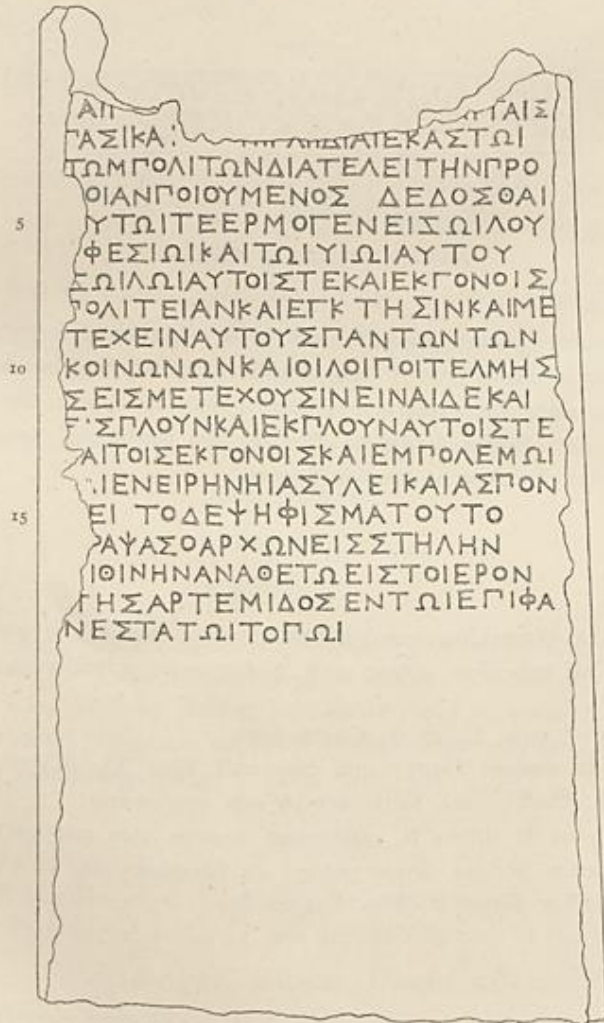 ΤΑΙΣ
ΤΩΜΠΟΛΙΤΩΝΔΙΑΤΕΛΕΙΤΗΝΠΡΟ
ΟΙΑΝΠΟΙΟΥΜΕΝΟΣ ΔΕΔΟΣΘΑΙ
5 ΥΤΩΙΤΕΕΡΜΟΓΕΝΕΙΖΩΙΛΟΥ
ΦΕΣΙΩΙΚΑΙΤΩΙΥΙΩΙΑΥΤΟΥ
ΖΩΙΛΩΙΑΥΤΟΙΣΤΕΚΑΙΕΚΓΟΝΟΙΣ
ΠΟΛΙΤΕΙΑΝΚΑΙΕΓΚΤΗΣΙΝΚΑΙΜΕ
ΤΕΧΕΙΝΑΥΤΟΥΣΠΑΝΤΩΝΤΩΝ
10 ΚΟΙΝΩΝΩΝΚΑΙΟΙΛΟΙΠΟΙΤΕΛΜΗΣ
ΣΕΙΣΜΕΤΕΧΟΥΣΙΝΕΙΝΑΙΔΕΚΑΙ
ΣΠΛΟΥΝΚΑΙΕΚΠΛΟΥΝΑΥΤΟΙΣΤΕ
ΑΙΤΟΙΣΕΚΓΟΝΟΙΣΚΑΙΕΜΠΟΛΕΜΩΙ
ΙΕΝΕΙΡΗΝΗΙΑΣΥΛΕΙΚΑΙΑΣΠΟΝ
15 ΕΙ ΤΟΔΕΨΗΦΙΣΜΑΤΟΥΤΟ
ΡΑΨΑΣΟΑΡΧΩΝΕΙΣΣΤΗΛΗΝ
ΙΘΙΝΗΝΑΝΑΘΕΤΩΕΙΣΤΟΙΕΡΟΝ
ΤΗΣΑΡΤΕΜΙΔΟΣΕΝΤΩΙΕΠΙΦΑ
ΝΕΣΤΑΤΩΙΤΟΠΩΙ